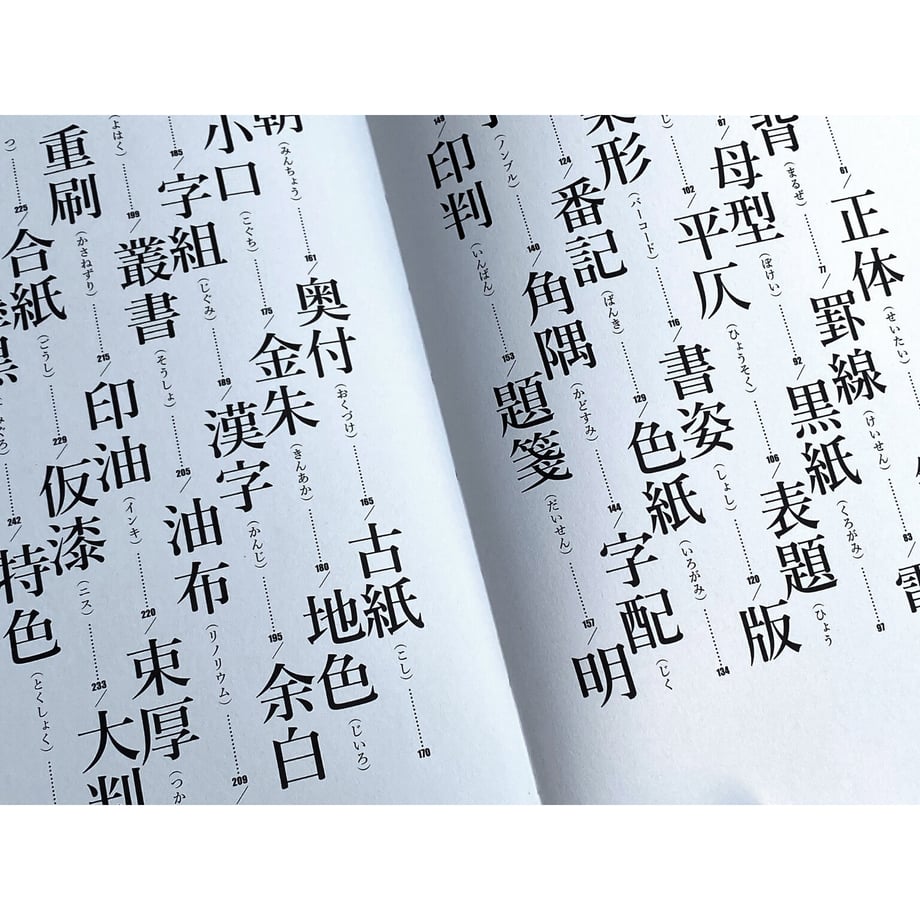 /正体(せいたい)
(まるぜ)77/罫線(けいせん)
67/母型(ぼけい)92/黒紙(くろがみ)97
102/平仄(ひょうそく)106/表題(ひょう
形(バーコード)116/書姿(しょし)120/版
124/番記(ばんき)129/色紙(いろがみ)134
(ノンブル)140/角隅(かどすみ)144/字配(じく
149/印判(いんばん)153/題箋(だいせん)157/明
朝(みんちょう)161/奥付(おくづけ)165/古紙(こし)170
小口(こぐち)175/金朱(きんあか)180/地色(じいろ)
185/字組(じぐみ)189/漢字(かんじ)195/余白
(よはく)199/叢書(そうしょ)205/油布(リノリウム)209/
重刷(かさねずり)215/印油(インキ)220/束厚(つか
つ)225/合紙(ごうし)229/仮漆(ニス)233/大判
黒 242/特色(とくしょく)